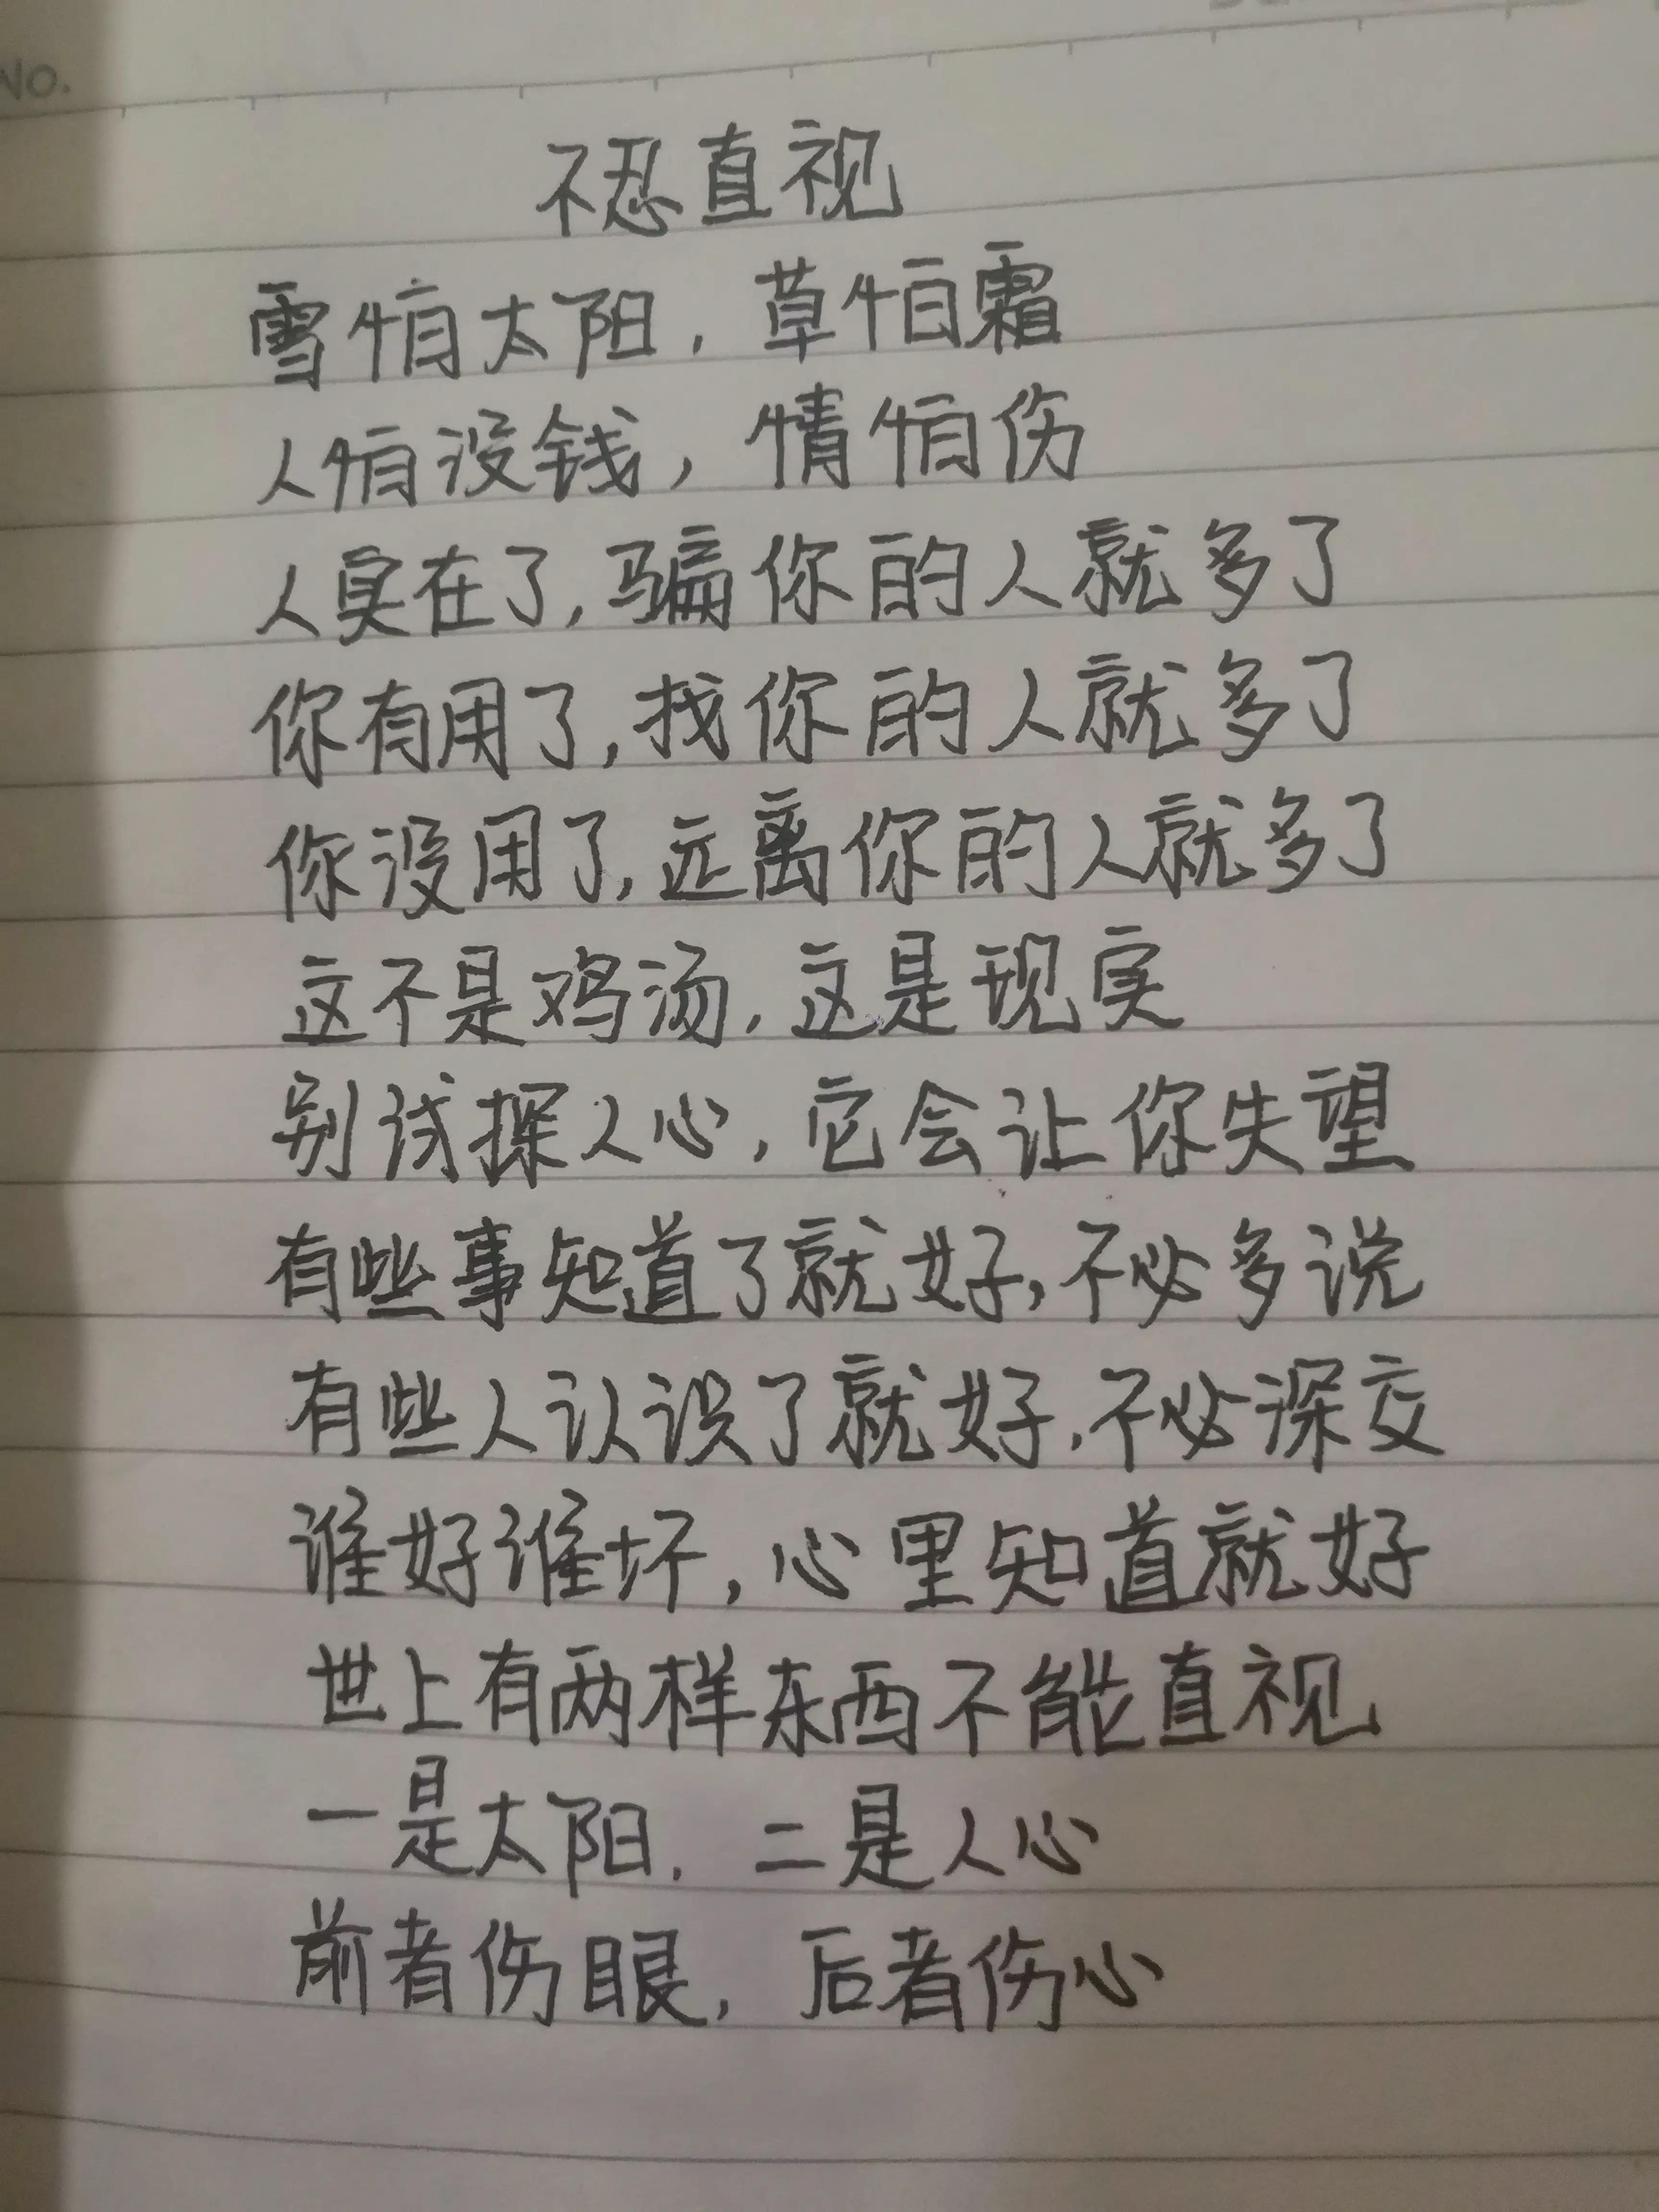 No.
不忍直视
雪怕太阳，草怕霜
人怕没钱，情怕伤
人实在了，骗你的人就多了
你有用了，找你的人就多了
你没用了，远离你的人就多了
这不是鸡汤，这是现实
别试探人心，它会让你失望
有些事知道了就好，不必多说
有些人认识了就好，不必深交
谁好谁坏，心里知道就好
世上有两样东西不能直视
一是太阳，二是人心
前者伤眼，后者伤心